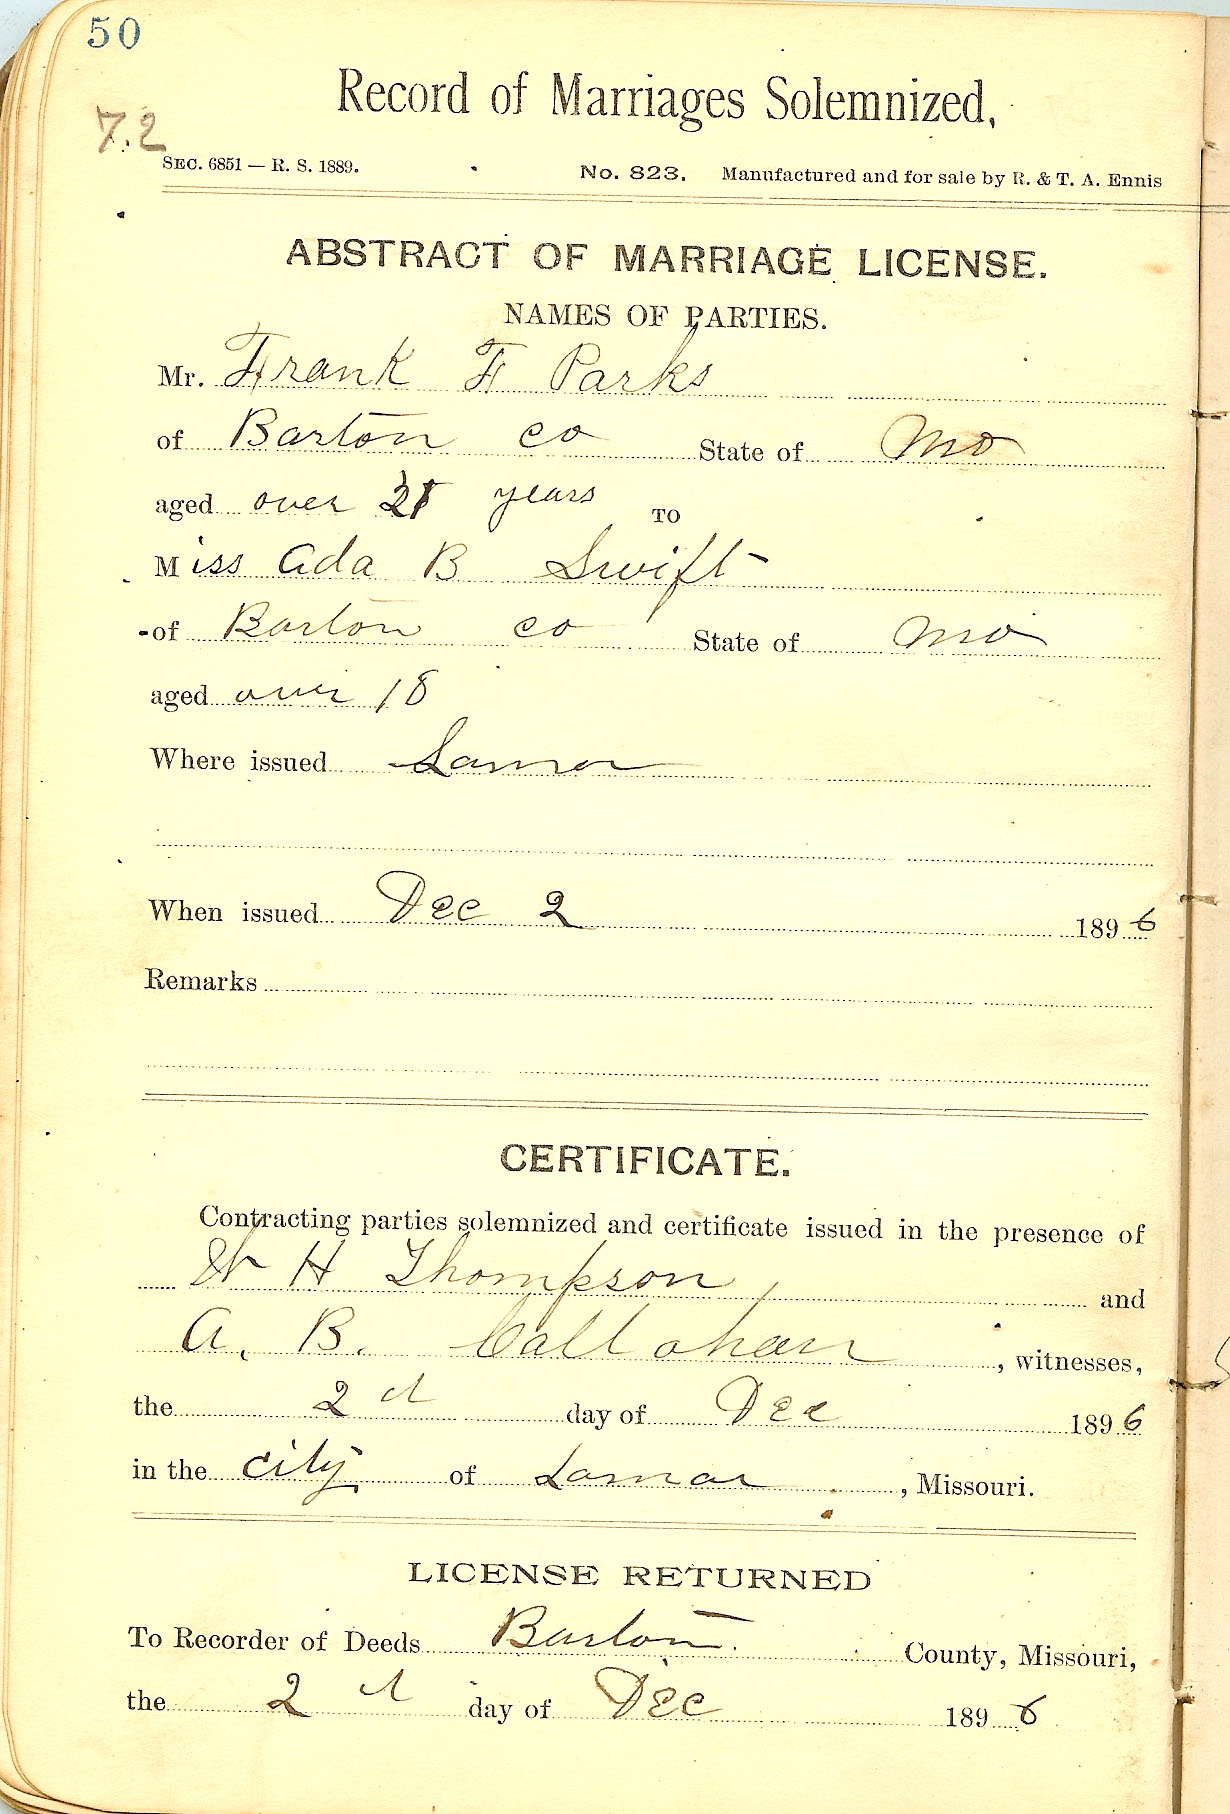 50
7.2
Record of Marriages Solemnized,
SEC. 6851 — R. S. 1889. No. 823. Manufactured and for sale by R. & T. A. Ennis
ABSTRACT OF MARRIAGE LICENSE.
NAMES OF PARTIES.
Mr. Frank F Parks
of Barton co State of Mo
aged over 21 years TO
Miss Ada B Swift
of Barton co State of Mo
aged over 18
Where issued Lamar
When issued Dec 2 1896
Remarks
CERTIFICATE.
Contracting parties solemnized and certificate issued in the presence of
W H Thompson and
A. B. Callahan, witnesses,
the 2d day of Dec 1896
in the city of Lamar, Missouri.
LICENSE RETURNED
To Recorder of Deeds Barton County, Missouri,
the 2d day of Dec 1896